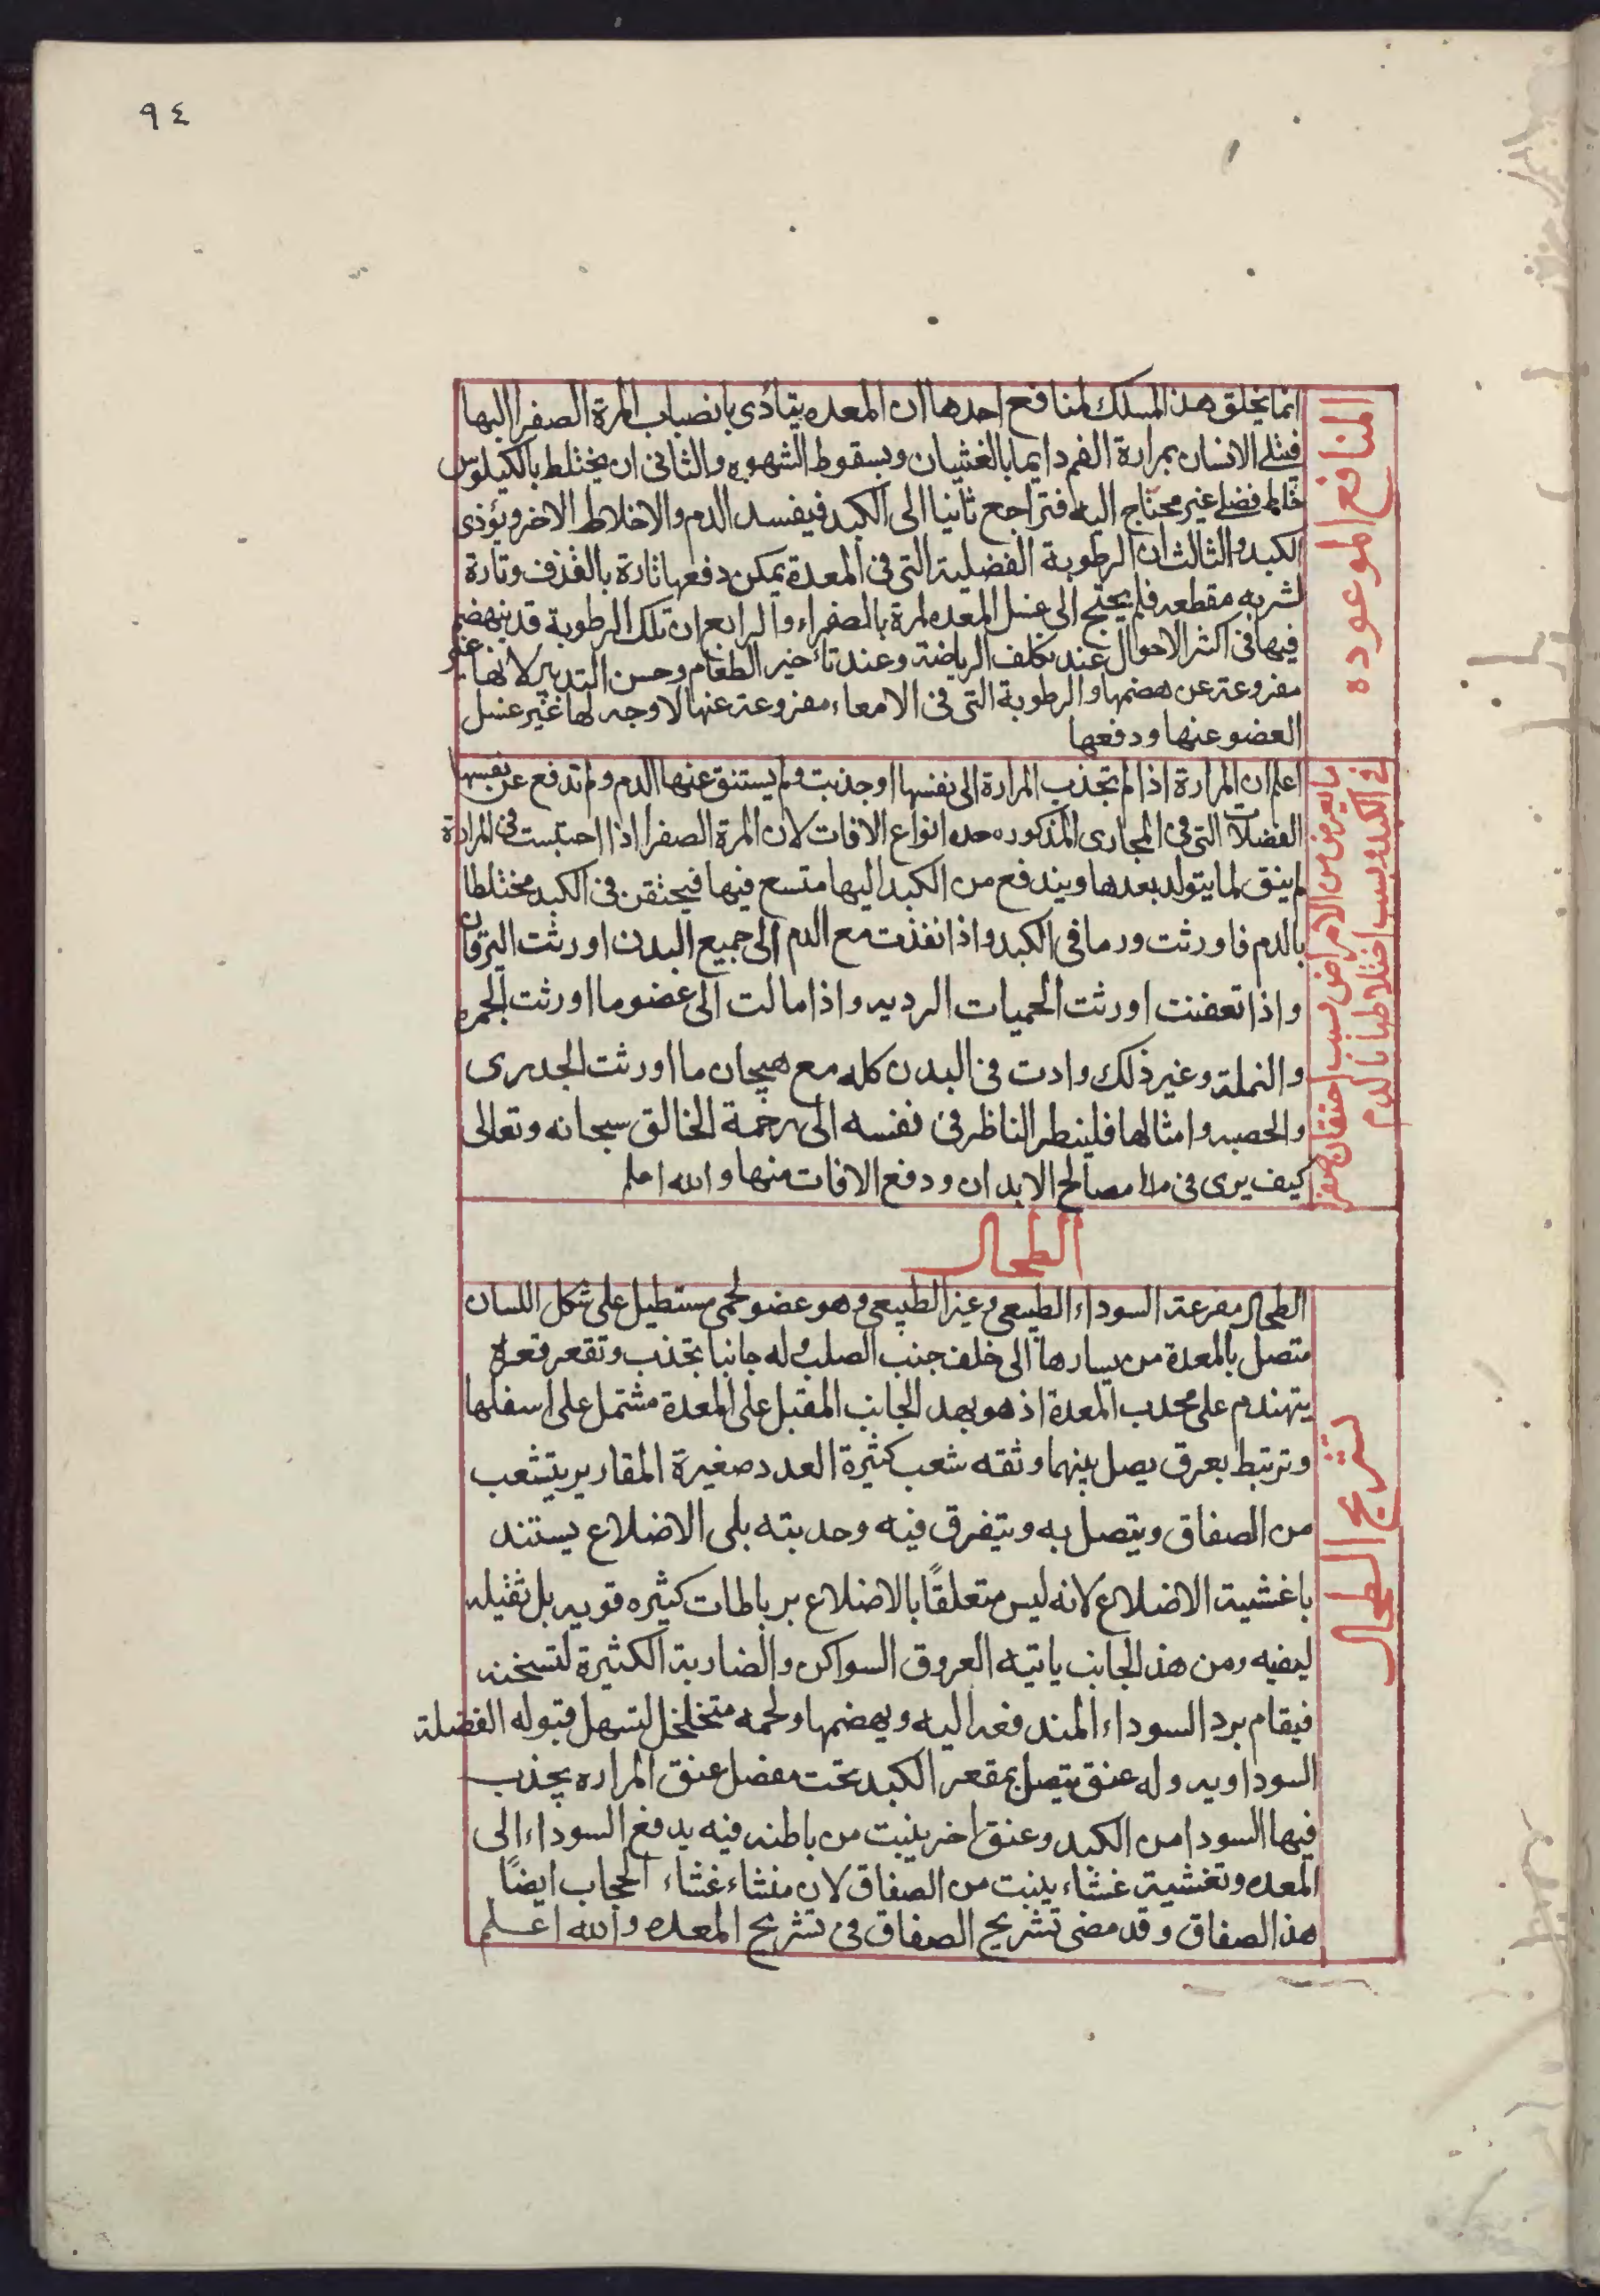 ٩٤
المنافع الموعوده
انما يخلق هذا المسلك لمنافع احدها ان المعده يتأذى بانصباب المرة الصفرا اليها
فبتلى الانسان بمرارة الفم دايما بالغثيان وبسقوط الشهوه والثانى ان يختلط بالكيلوس
خالط فضلى غير محتاج اليه فتراجع ثانيا الى الكبد فيفسد الدم والاخلاط الاخر ويؤذى
الكبد والثالث ان الرطوبة الفضلية التى فى المعدة يمكن دفعها تارة بالقذف وتارة
لشربه مقطعه فلم يحتج الى غسل المعده لمرة بالصفراء والرابع ان تلك الرطوبة قد ينهضم
فيها فى اكثر الاحوال عند تكلف الرياضة وعند تأخير الطعام وحسن التدبير لانها غير
مفروعة عن هضمها والرطوبة التى فى الامعاء مفروعة عنها لا وجه لها غير غسل
العضو عنها ودفعها
ما يعرض من الامراض بسبب احتقان الصفرا
فى الكبد وبسبب اختلاطها بالدم
اعلم ان المرارة اذا لم تجذب المرارة الى نفسها او جذبت ولم يستنق عنها الدم ولم تدفع عن نفسها
الفضلات التى فى المجارى المذكوره حده انواع الافات لان المرة الصفرا اذا احتبست فى المرارة
لم ينق لما يتولد بعدها ويندفع من الكبد اليها متسع فيها فيحتقن فى الكبد مختلطا
بالدم فاورثت ورما فى الكبد واذا نفذت مع الدم الى جميع البدن اورثت اليرقان
واذا تعفنت اورثت الحميات الرديه واذا مالت الى عضو ما اورثت الجمره
والنملة وغير ذلك وادت فى البدن كله مع هيجان ما اورثت الجدرى
والحصبه وامثالها فلينظر الناظر فى نفسه الى رحمة الخالق سبحانه وتعالى
كيف يرى فى ملا مصالح الابدان ودفع الافات منها والله اعلم
الطحال
تشريح الطحال
الطحال مفرعة السوداء الطبيعى وغير الطبيعى وهو عضو لحمى مستطيل على شكل اللسان
متصل بالمعدة من يسارها الى خلف جنب الصلب وله جانبا تحذب وتقعر فقعره
يتهندم على محدب المعدة اذ هو بهد الجانب المقبل على المعدة مشتمل على اسفلها
وترتبط بعرق يصل بينهما وثقه شعب كثيرة العدد صغيرة المقادير يتشعب
من الصفاق ويتصل به ويتفرق فيه وحدبته يلى الاضلاع يستند
باغشية الاضلاع لانه ليس متعلقًا بالاضلاع برباطات كثيره قويه بل ثقيله
ليفيه ومن هذ الجانب ياتيه العروق السواكن والضاربة الكثيرة لتسخنه
فيقام برد السوداء المندفعه اليه ويهضمها ولحمه متخلخل لتسهل قبوله الفضلة
السوداويه وله عنق يتصل بمقعر الكبد تحت مفصل عنق المراره يجذب
فيها السودا من الكبد وعنق اخر ينبت من باطنه فيه يدفع السوداء الى
المعده وتغشيه غشاء ينبت من الصفاق لان منشاء غشاء الحجاب ايضًا
هذ الصفاق وقد مضى تشريح الصفاق فى تشريح المعده والله اعلم